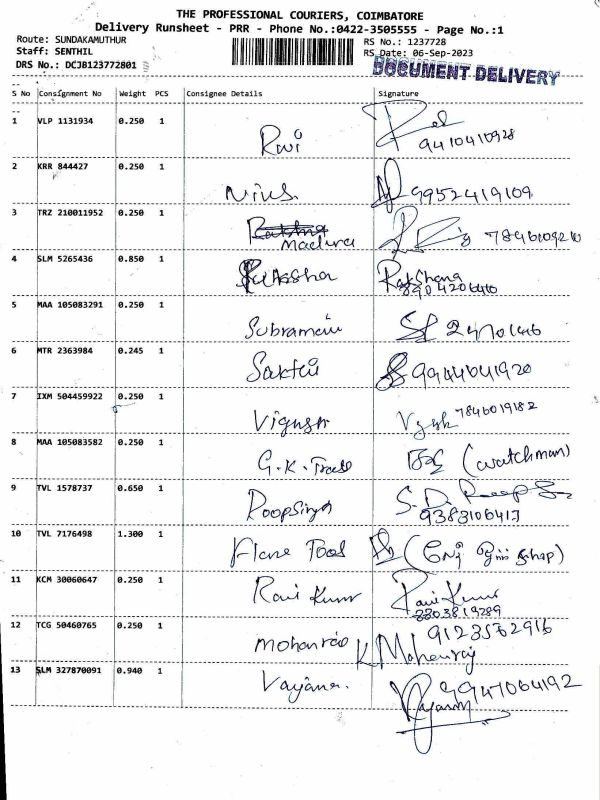 THE PROFESSIONAL COURIERS, COIMBATORE
Delivery Runsheet - PRR - Phone No.:0422-3505555 - Page No.:1
Route: SUNDAKAMUTHUR
RS No.: 1237728
Staff: SENTHIL
RS Date: 06-Sep-2023
DRS No.: DCJB123772801
DOCUMENT DELIVERY
S No Consignment No Weight PCS Consignee Details Signature
1 VLP 1131934 0.250 1 Ravi
9410410928
2 KRR 844427 0.250 1 9952419109
3 TRZ 210011952 0.250 1
4 SLM 5265436 0.850 1 Rakshana
8904206410
5 MAA 105083291 0.250 1 24701446
6 MTR 2363984 0.245 1 9944041920
7 IXM 504459922 0.250 1 7846019182
8 MAA 105083582 0.250 1 G.K. (watchman)
9 TVL 1578737 0.650 1 Roopsingh S.D.
10 TVL 7176498 1.300 1
11 KCM 30060647 0.250 1 Ravi Kumar Ravi Kumar
8803819289
12 TCG 50460765 0.250 1 Mohanrao K Mohanraj
13 SLM 327870091 0.940 1 9947064192